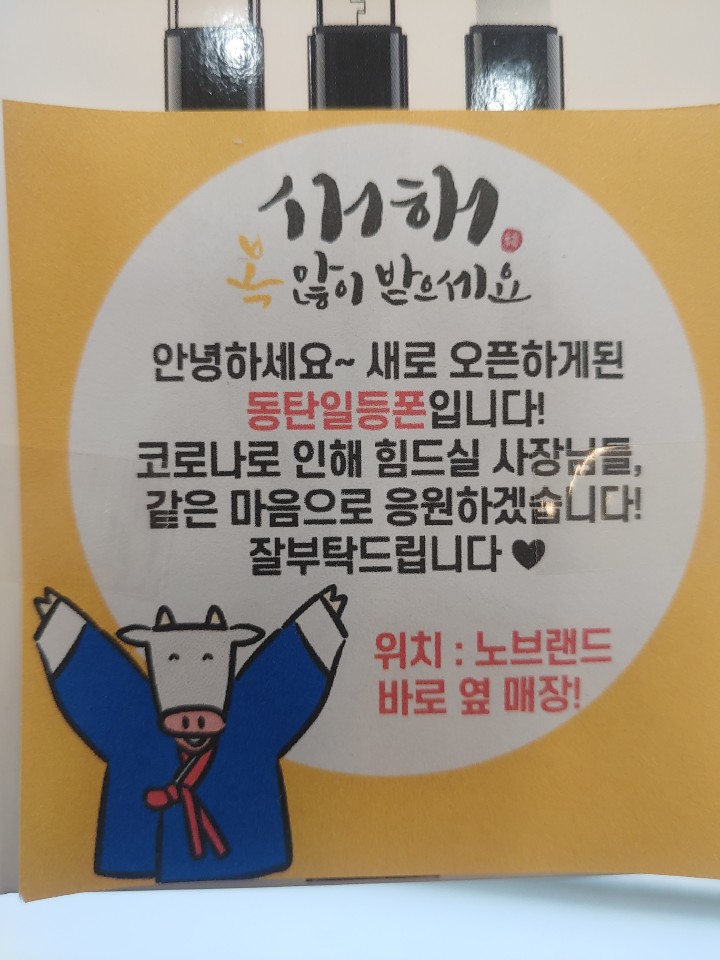 새해
복 많이 받으세요
안녕하세요~ 새로 오픈하게된
동탄일등폰입니다!
코로나로 인해 힘드실 사장님들,
같은 마음으로 응원하겠습니다!
잘부탁드립니다 ♥
위치 : 노브랜드
바로 옆 매장!